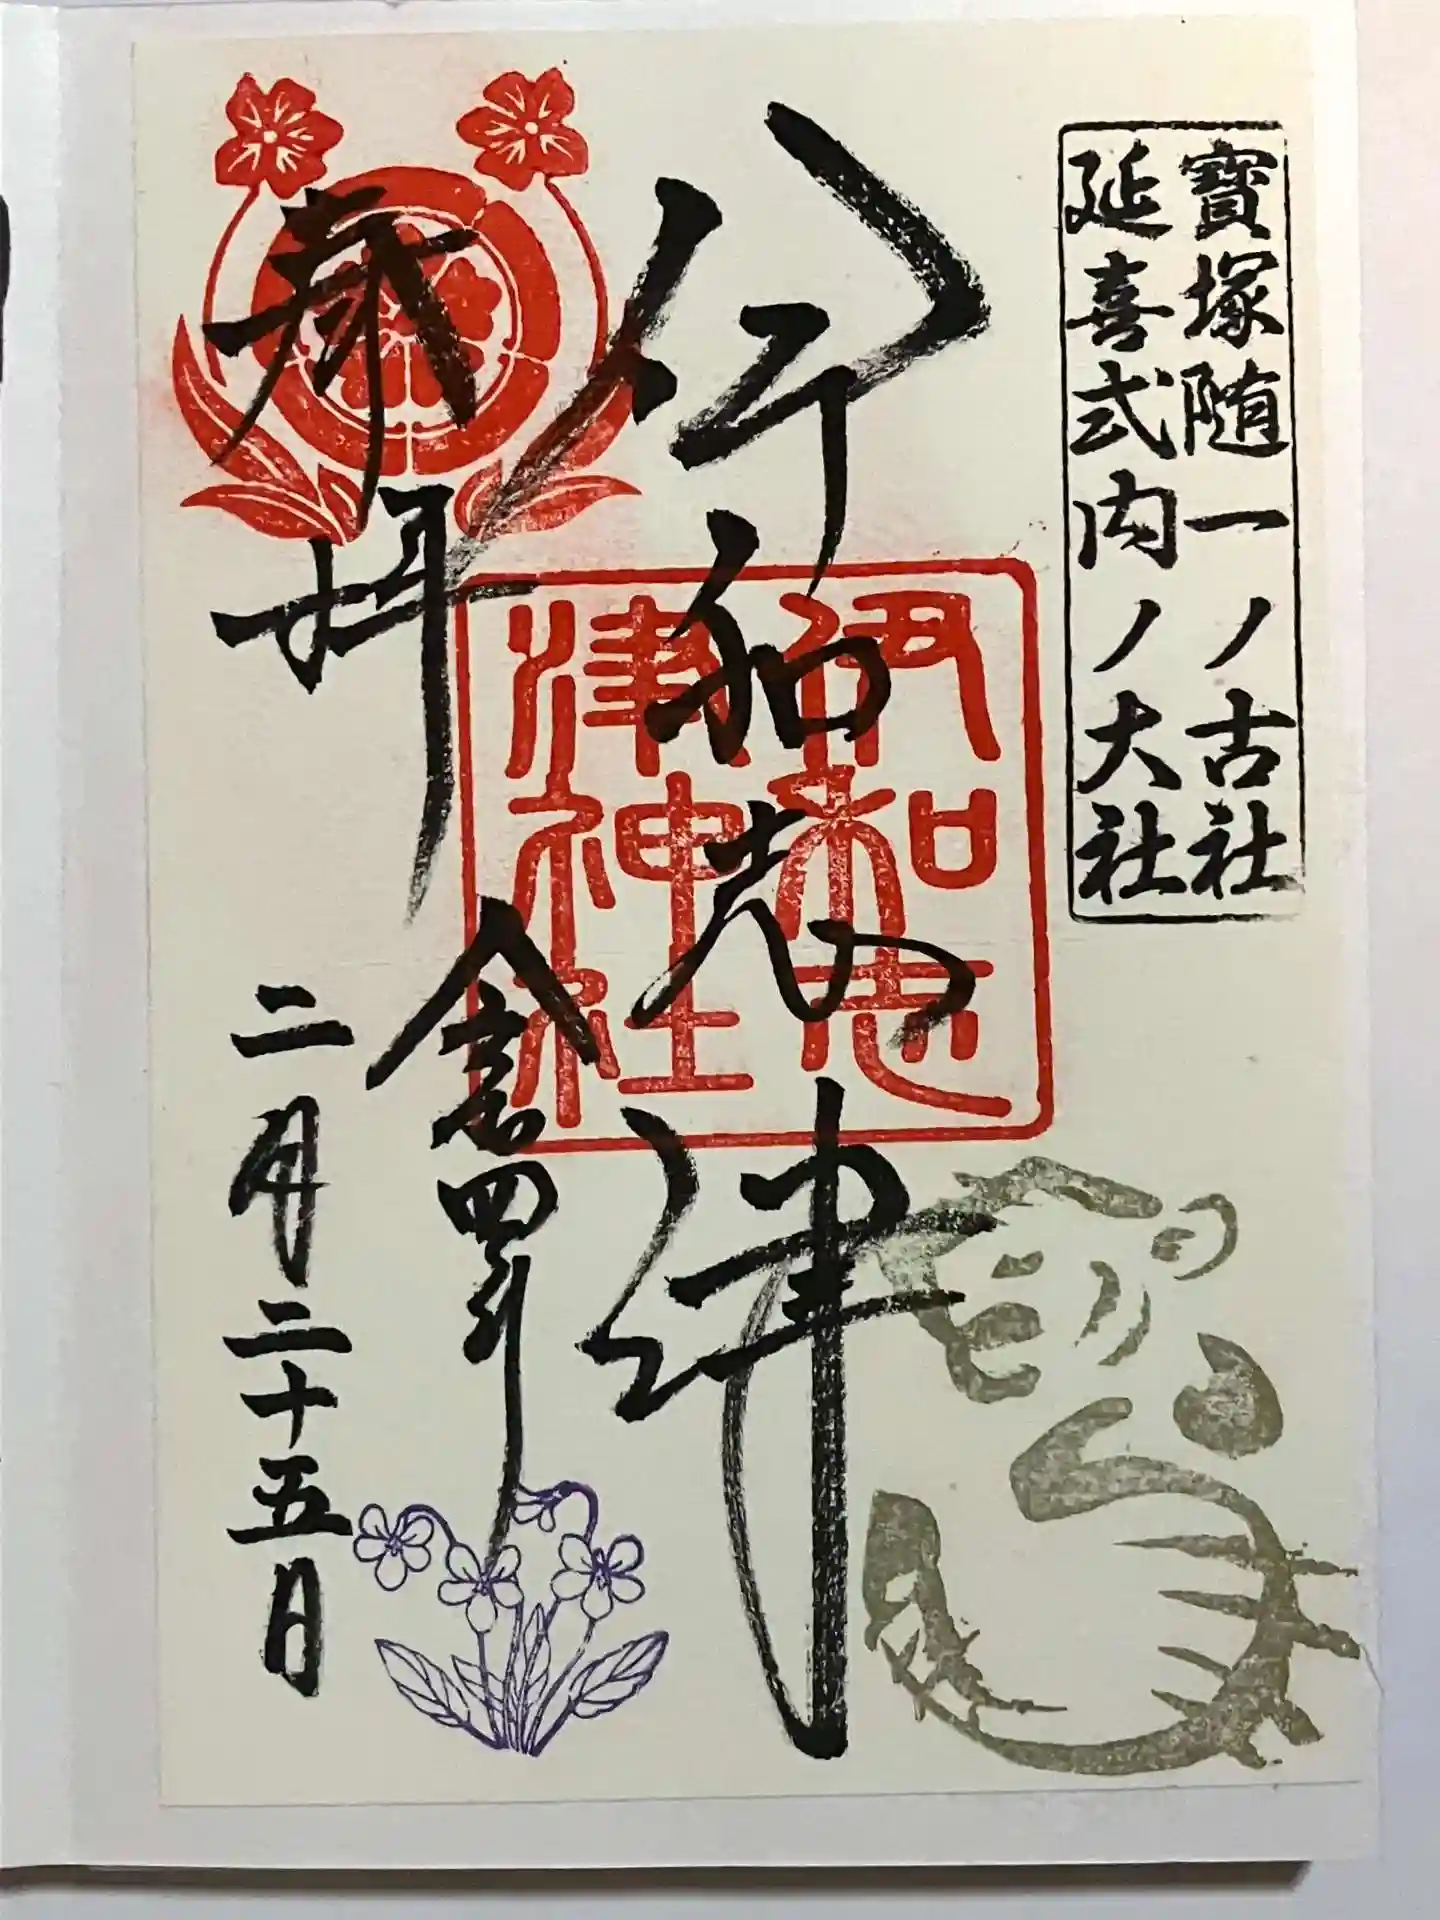 寶塚随一ノ古社
延喜式内ノ大社
伊和志津
伊和志
津神社
奉拝
令和四年
二月二十五日